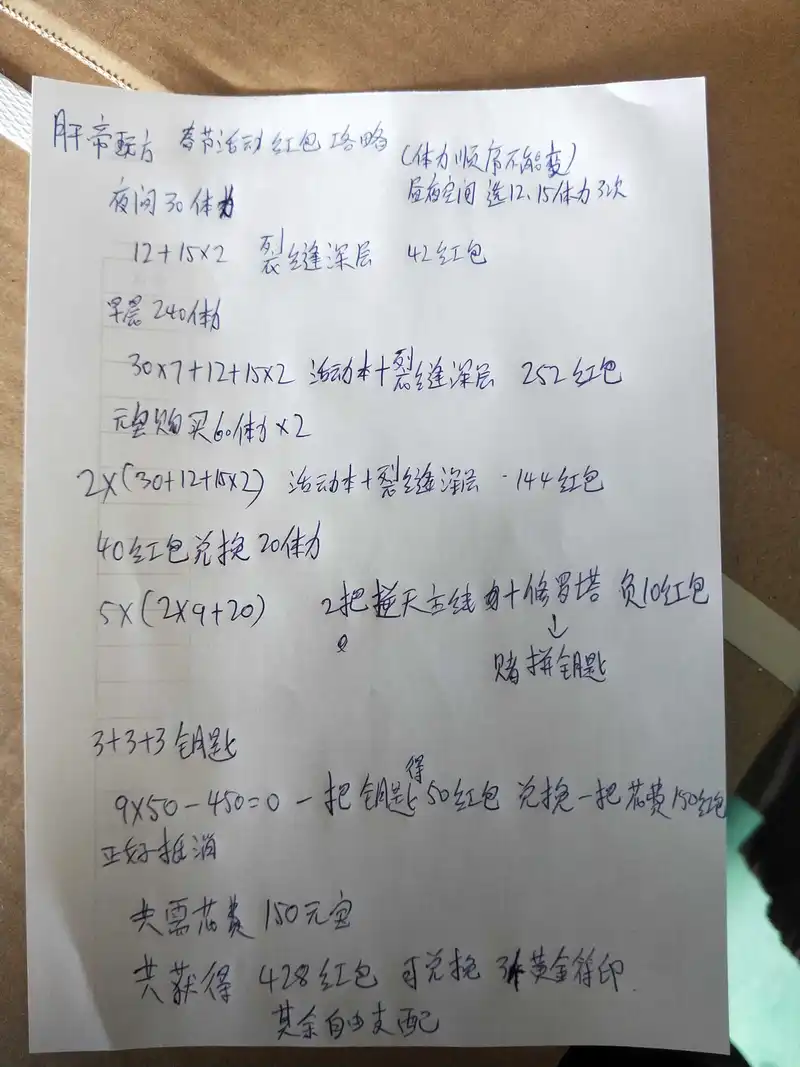 肝帝配方 春节活动红包攻略
(体力顺序不能变)
夜间30体力
昼夜空间 选12、15体力3次
12+15×2 裂缝深层 42红包
早晨240体力
30×7+12+15×2 活动本+裂缝深层 252红包
元宝购买60体力×2
2×(30+12+15×2) 活动本+裂缝深层 144红包
40红包兑换20体力
5×(2×9+20) 2把 天主线 +修罗塔 负10红包
↓
赌拼钥匙
3+3+3钥匙
9×50-450=0 一把钥匙得50红包 兑换一把花费150红包
正好抵消
共需花费150元宝
共获得 428红包 可兑换 黄金符印
其余自由支配